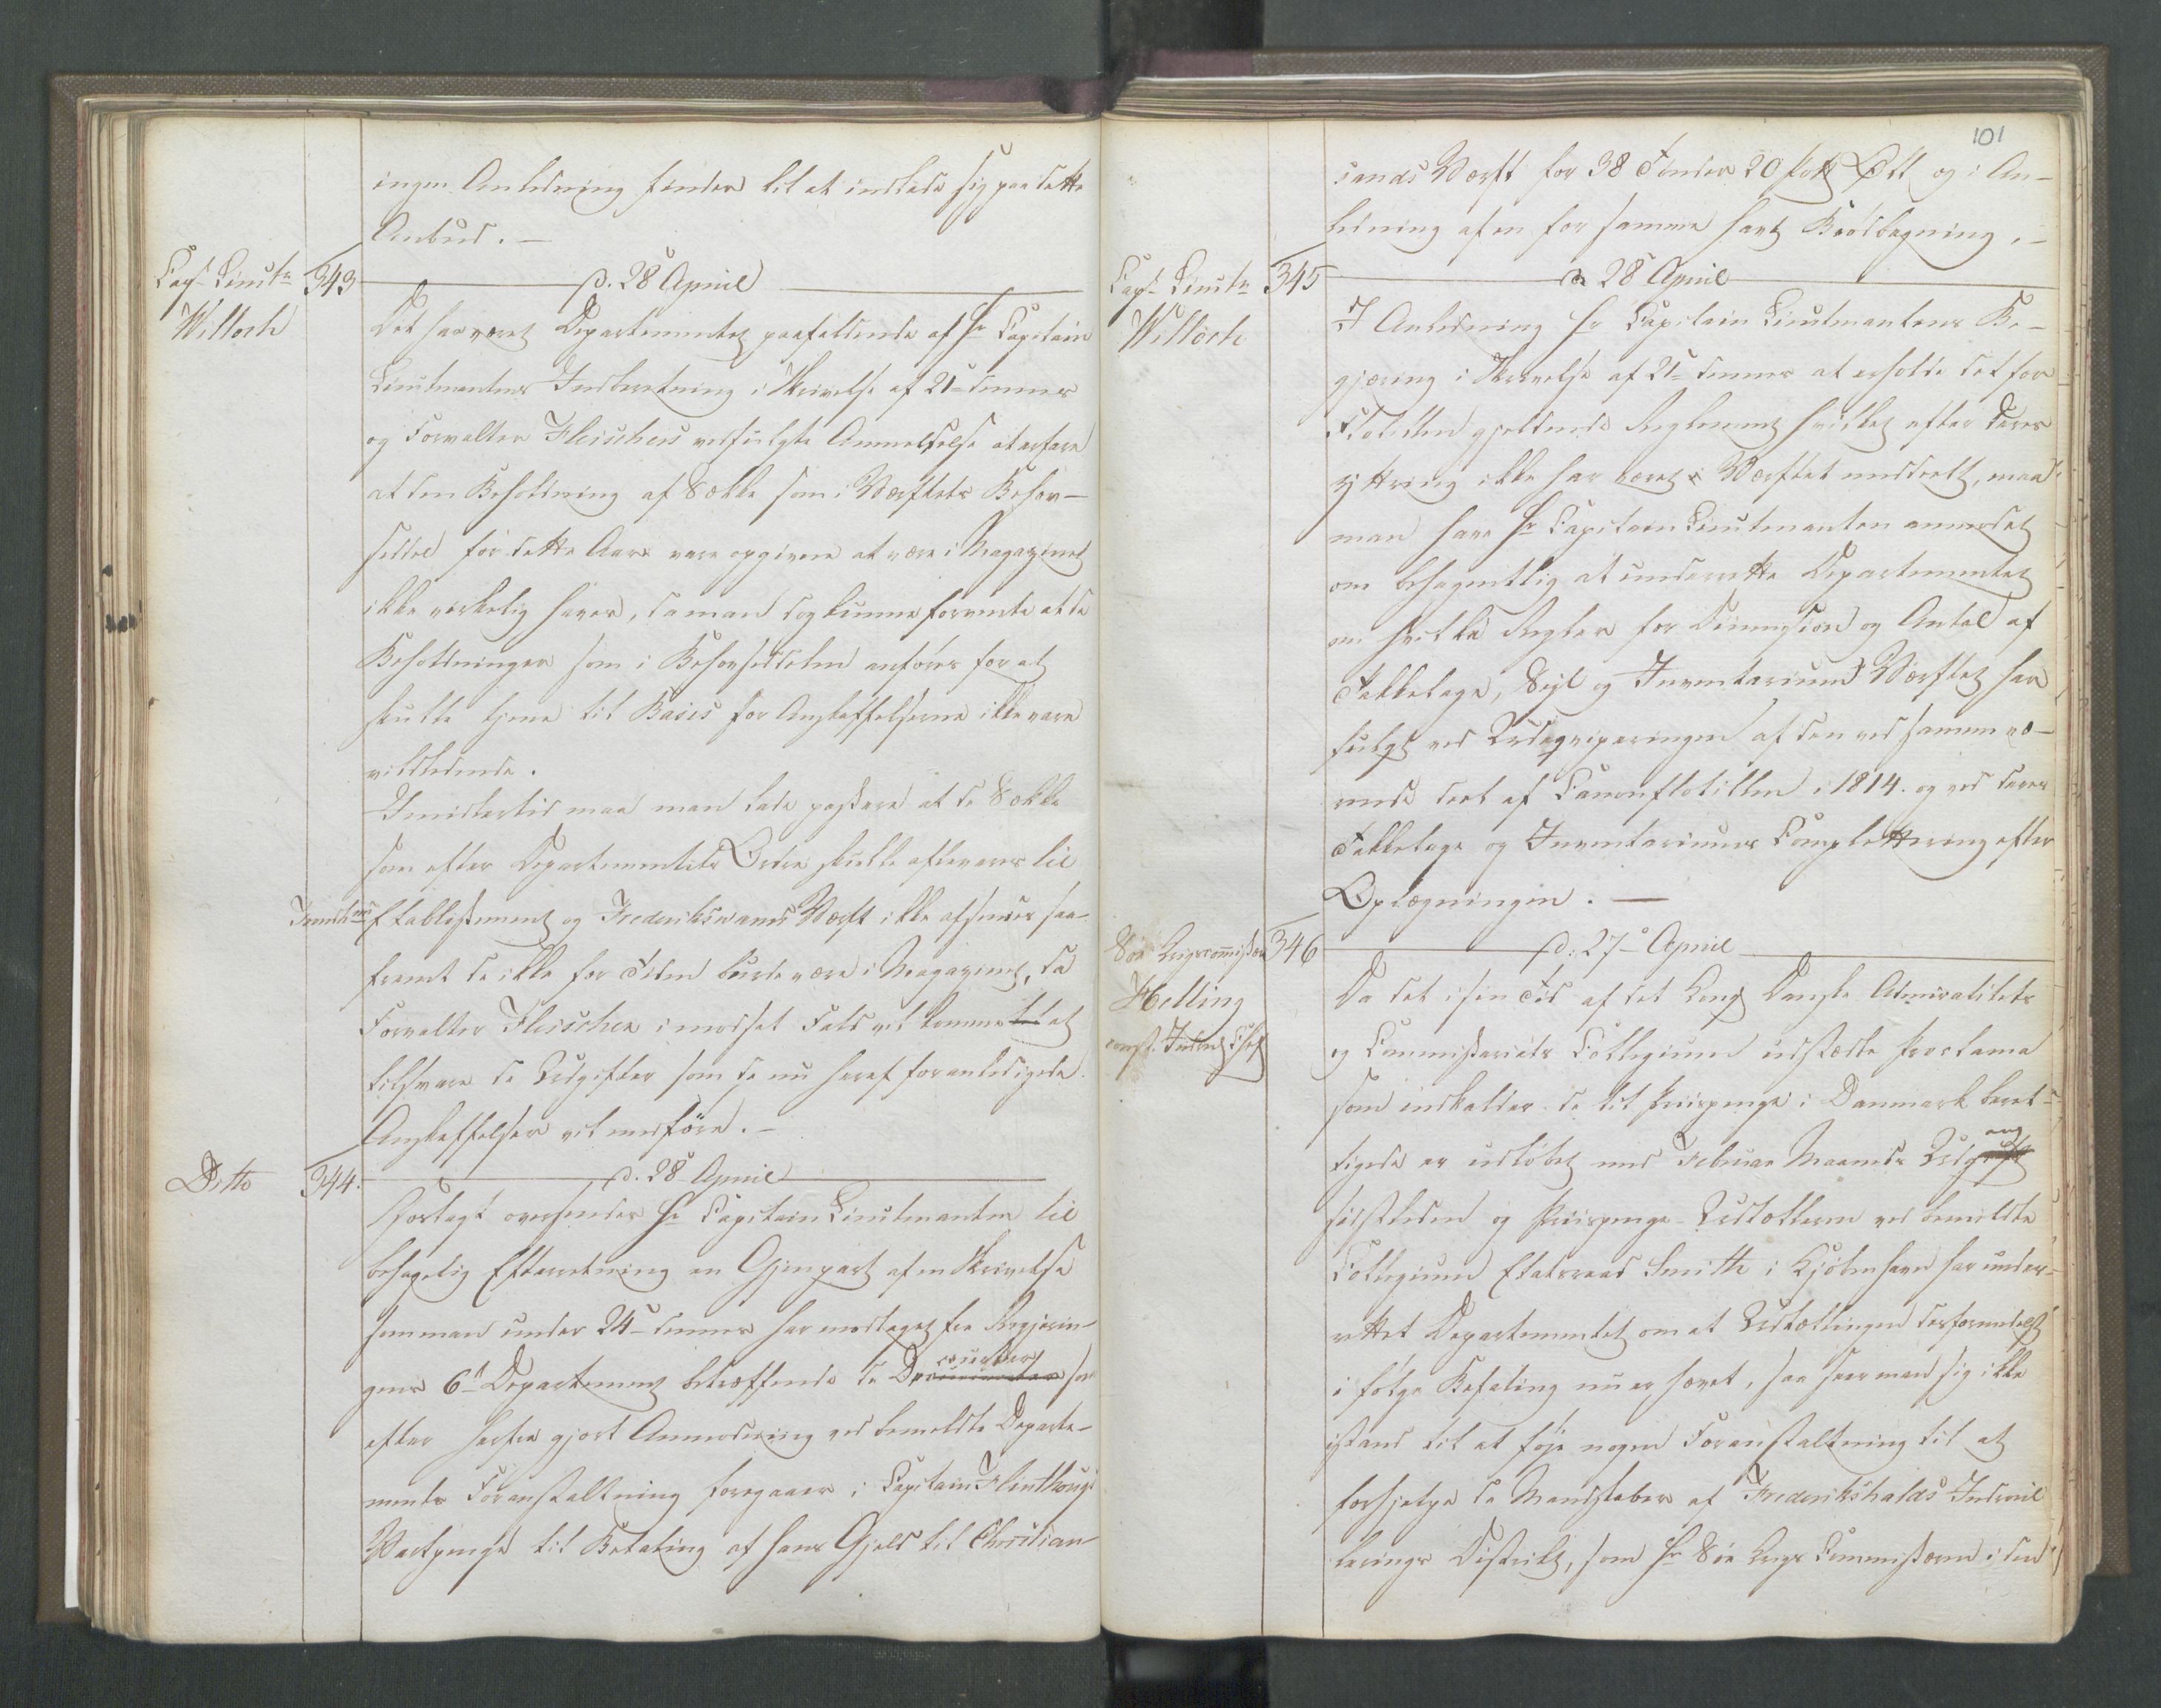 ingen Anledning finder til at indlade sig paa dette
Anbud. –
Capt: Lieutn
Willoch
343
d. 28 April
Det har været Departementet paafaldende af Hr Capitain
Lieutenantens Indberetning i Skrivelse af 21 dennes
og Forvalter Fleischers vedfulgte Anmeldelse at erfare
at den Beholdning af Sække som i Værftets Behov-
seddel for dette Aar vare opgivne at være i Magazinet
ikke virkelig haves, da man dog kunne forvente at de
Beholdninger som i Behovseddelen anføres for at
skulle tjene til Basis for Anskaffelserne ikke vare
vildledende.
Imidlertid maa man lade passere at de Sække
som efter Departementets Ordre skulle afleveres til
Trondhms Etablissement og Frederikswærns Værft ikke afsendes saa-
fremt de ikke for Tiden burde være i Magazinet, da
Forvalter Fleischer i modsat Fald vil komme til at
tilsvare de Udgifter som de nu heraf foranledigede
Anskaffelser vil medføre. –
Ditto
344.
d. 28 April
Hoslagt oversendes Hr Capitain Lieutenanten til
behagelig Efterretning en Gjenpart af en Skrivelse
som man under 24 dennes har modtaget fra Regjerin-
gens 6t Departement betræffende de Documenter som
efter herfra gjort Anmodning ved bemeldte Departe-
ments Foranstaltning foregaaer i Capitain Flinthougs
Vartpenge til Betaling af hans Gjeld til Christian-
101
sands Værft for 38 Tønder 20 Øll og i An-
ledning af en for samme havt Brødbagning. –
Capt: Lieutn
Willoch
345
d 28 April
I Anledning Hr Capitain Lieutenantens Be-
gjæring i Skrivelse af 21 dennes at erholde det for
Flotillen gjeldende Reglement hvilket efter deres
Yttring ikke har været Værftet meddeelt, maa
man have Hr Capitain Lieutenanten anmodet
om behageligtlig at underrette Departementet
om hvilke Regler for Dimension og Antal af
Takkelage, Seyl og Inventarium Værftet har
fulgt ved Udeqviperingen af den ved samme væ-
rende Deel af Canonflotillen i 1814. og ved deres
Takkelage og Inventariums Complettering efter
Oplægningen. –
Søe Krigscommissair
Helling
const. Indrul: Chef
346
d: 27 April
Da det i sin Tid af det Kong Danske Admiralitets
og Commissariats Collegium udstædte Proclama
som indkalder de til Priispenge i Danmark beret-
tigede er udløbet med Februar Maaneds Udgang
sidstleden og Priispenge-Udtælleren ved bemeldte
Collegium Etatsraad Smith i Kjøbenhavn har under-
rettet Departementet om at Udtællingen derformedelst
i følge Befaling nu er hævet, saa seer man sig ikke
istand til at føje nogen Foranstaltning til at
forhjelpe de Mandskaber af Frederikshalds Indroul
lerings District, som Hr Søe Krigs Commissairen i den